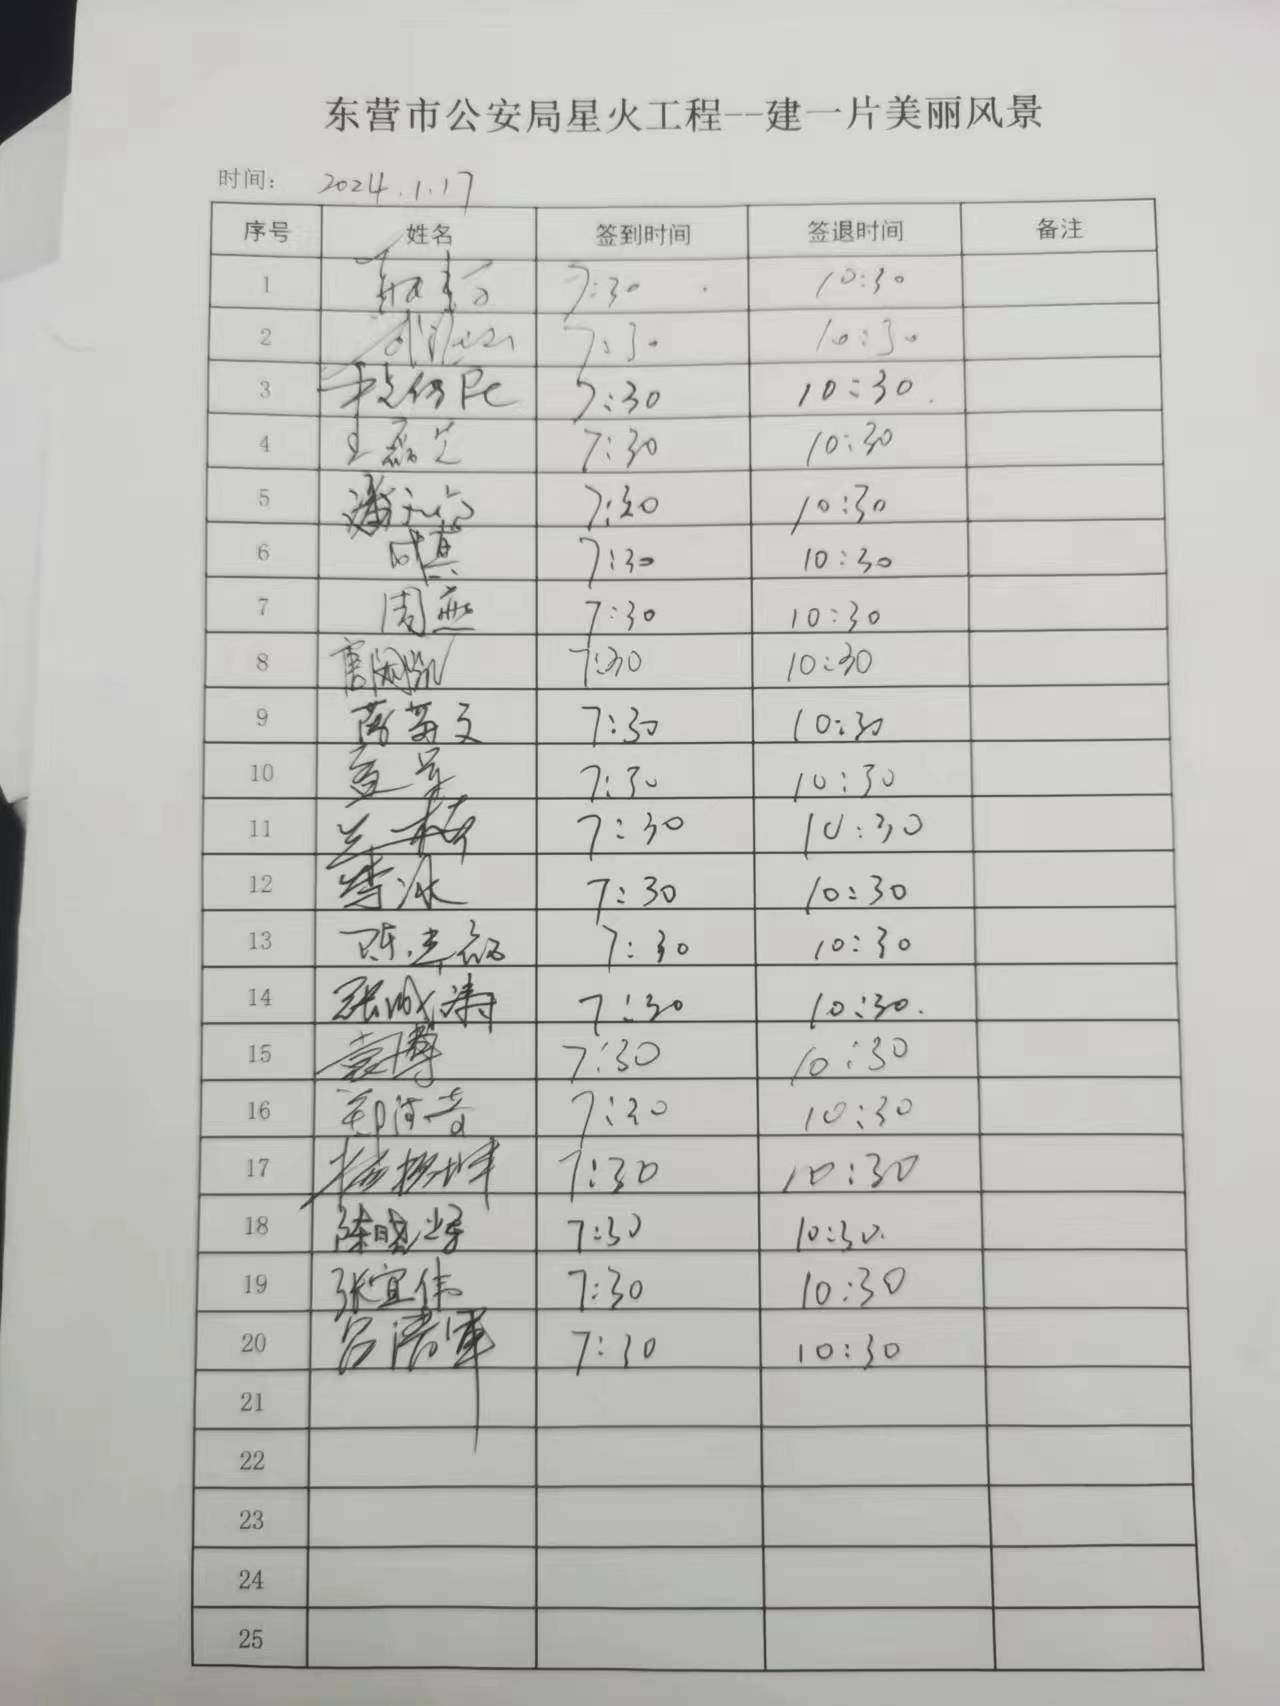 东营市公安局星火工程--建一片美丽风景
时间： 2024.1.17
序号 姓名 签到时间 签退时间 备注
1 7:30 10:30
2 7:30 10:30
3 7:30 10:30
4 王磊 7:30 10:30
5 潘 7:30 10:30
6 7:30 10:30
7 周燕 7:30 10:30
8 7:30 10:30
9 文 7:30 10:30
10 7:30 10:30
11 7:30 10:30
12 李冰 7:30 10:30
13 陈 7:30 10:30
14 张成涛 7:30 10:30
15 袁博 7:30 10:30
16 郑 7:30 10:30
17 杨 7:30 10:30
18 陈晓 7:30 10:30
19 张宜伟 7:30 10:30
20 吕清军 7:30 10:30
21
22
23
24
25